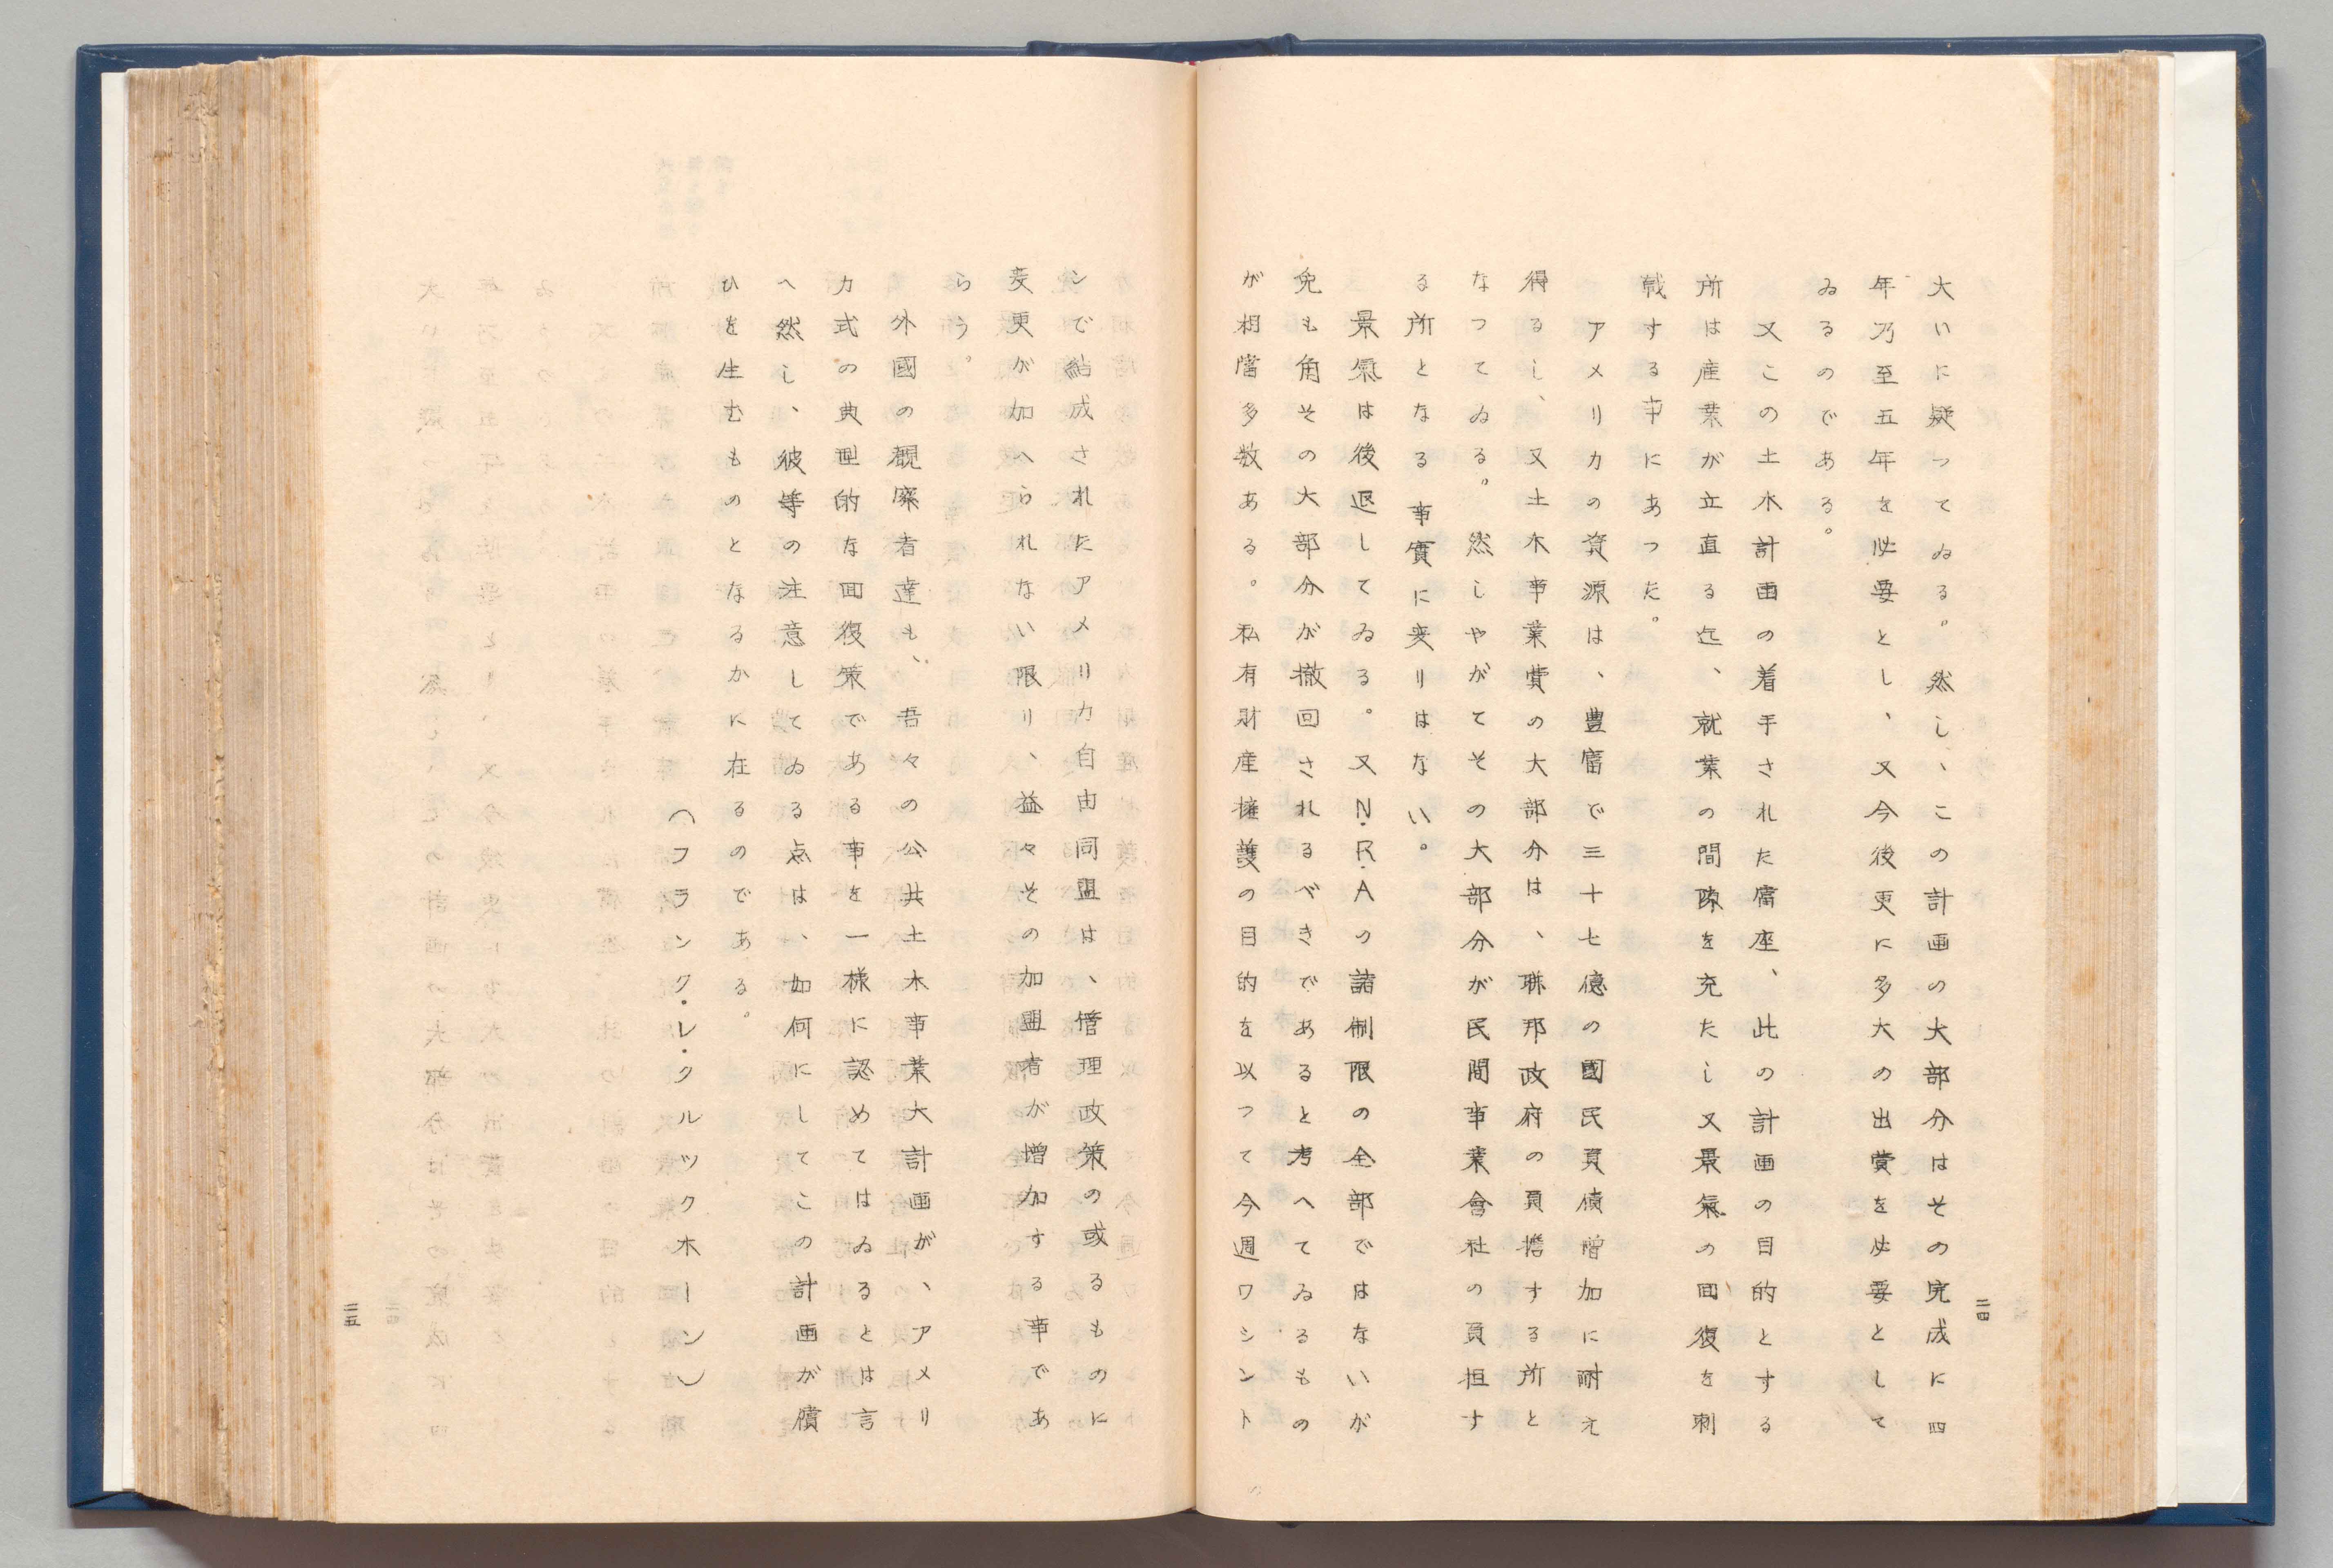 大いに疑ってゐる。然し、この計画の大部分はその完成に四
年乃至五年を必要とし、又今後更に多大の出費を必要として
ゐるのである。
又この土木計画の着手された當座、此の計画の目的とする
所は産業が立直る迄、就業の間隙を充たし又景氣の回復を刺
戟する事にあった。
アメリカの資源は、豊富で三十七億の國民負債増加に耐え
得るし、又土木事業費の大部分は、聯邦政府の負擔する所と
なってゐる。然しやがてその大部分が民間事業會社の負担す
る所となる事實に変りはない。
景氣は後退してゐる。又N・R・Aの諸制限の全部ではないが
兎も角その大部分が撤回されるべきであると考へてゐるもの
が相當多数ある。私有財産擁護の目的を以って今週ワシント
二四
ンで結成されたアメリカ自由同盟は、管理政策の或るものに
変更が加へられない限り、益々その加盟者が増加する事であ
らう。
外國の観察者達も、吾々の公共土木事業大計画が、アメリ
カ式の典型的な回復策である事を一様に認めてはゐるとは言
へ然し、彼等の注意してゐる点は、如何にしてこの計画が償
ひを生むものとなるかに在るのである。
(フランク・レ・クルックホーン)
二五